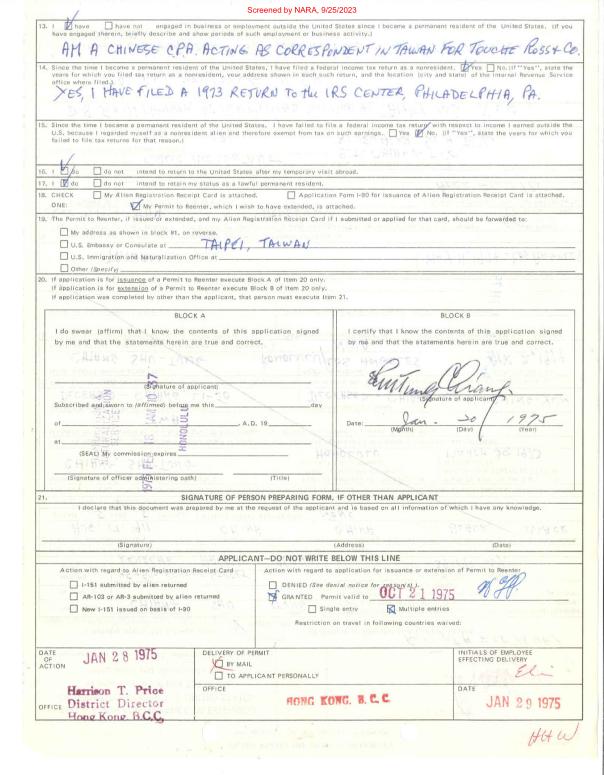 Screened by NARA, 9/25/2023
13. I ☑ have ☐ have not engaged in business or employment outside the United States since I became a permanent resident of the United States. (If you
have engaged therein, briefly describe and show periods of such employment or business activity.)
AM A CHINESE CPA. ACTING AS CORRESPONDENT IN TAIWAN FOR TOUCHE ROSS & CO.
14. Since the time I became a permanent resident of the United States, I have filed a federal income tax return as a nonresident. ☑ Yes ☐ No. (If "Yes", state the
years for which you filed tax return as a nonresident, your address shown in each such return, and the location (city and state) of the Internal Revenue Service
office where filed.)
YES, I HAVE FILED A 1973 RETURN TO the IRS CENTER, PHILADELPHIA, PA.
15. Since the time I became a permanent resident of the United States, I have failed to file a federal income tax return with respect to income I earned outside the
U.S. because I regarded myself as a nonresident alien and therefore exempt from tax on such earnings. ☐ Yes ☑ No. (If "Yes", state the years for which you
failed to file tax returns for that reason.)
16. I ☑ do ☐ do not intend to return to the United States after my temporary visit abroad.
17. I ☑ do ☐ do not intend to retain my status as a lawful permanent resident.
18. CHECK ☐ My Alien Registration Receipt Card is attached. ☐ Application Form I-90 for issuance of Alien Registration Receipt Card is attached.
ONE: ☑ My Permit to Reenter, which I wish to have extended, is attached.
19. The Permit to Reenter, if issued or extended, and my Alien Registration Receipt Card if I submitted or applied for that card, should be forwarded to:
☐ My address as shown in block #1, on reverse.
☐ U.S. Embassy or Consulate at TAIPEI, TAIWAN
☐ U.S. Immigration and Naturalization Office at
☐ Other (Specify)
20. If application is for issuance of a Permit to Reenter execute Block A of Item 20 only.
If application is for extension of a Permit to Reenter execute Block B of Item 20 only.
If application was completed by other than the applicant, that person must execute Item 21.
BLOCK A
I do swear (affirm) that I know the contents of this application signed
by me and that the statements herein are true and correct.
(Signature of applicant)
Subscribed and sworn to (affirmed) before me this day
of , A.D. 19
at
(SEAL) My commission expires
(Signature of officer administering oath) (Title)
HONOLULU
BLOCK B
I certify that I know the contents of this application signed
by me and that the statements herein are true and correct.
(Signature of applicant)
Date: Jan. 20 1975
(Month) (Day) (Year)
21. SIGNATURE OF PERSON PREPARING FORM, IF OTHER THAN APPLICANT
I declare that this document was prepared by me at the request of the applicant and is based on all information of which I have any knowledge.
(Signature) (Address) (Date)
APPLICANT—DO NOT WRITE BELOW THIS LINE
Action with regard to Alien Registration Receipt Card
☐ I-151 submitted by alien returned
☐ AR-103 or AR-3 submitted by alien returned
☐ New I-151 issued on basis of I-90
Action with regard to application for issuance or extension of Permit to Reenter
☐ DENIED (See denial notice for reasons.)
☒ GRANTED Permit valid to OCT 21 1975
☐ Single entry ☒ Multiple entries
Restriction on travel in following countries waived:
DATE OF ACTION JAN 28 1975
DELIVERY OF PERMIT
☒ BY MAIL
☐ TO APPLICANT PERSONALLY
INITIALS OF EMPLOYEE EFFECTING DELIVERY
OFFICE Harrison T. Price
District Director
Hong Kong, B.C.C.
OFFICE
HONG KONG, B.C.C.
DATE
JAN 29 1975
HHW